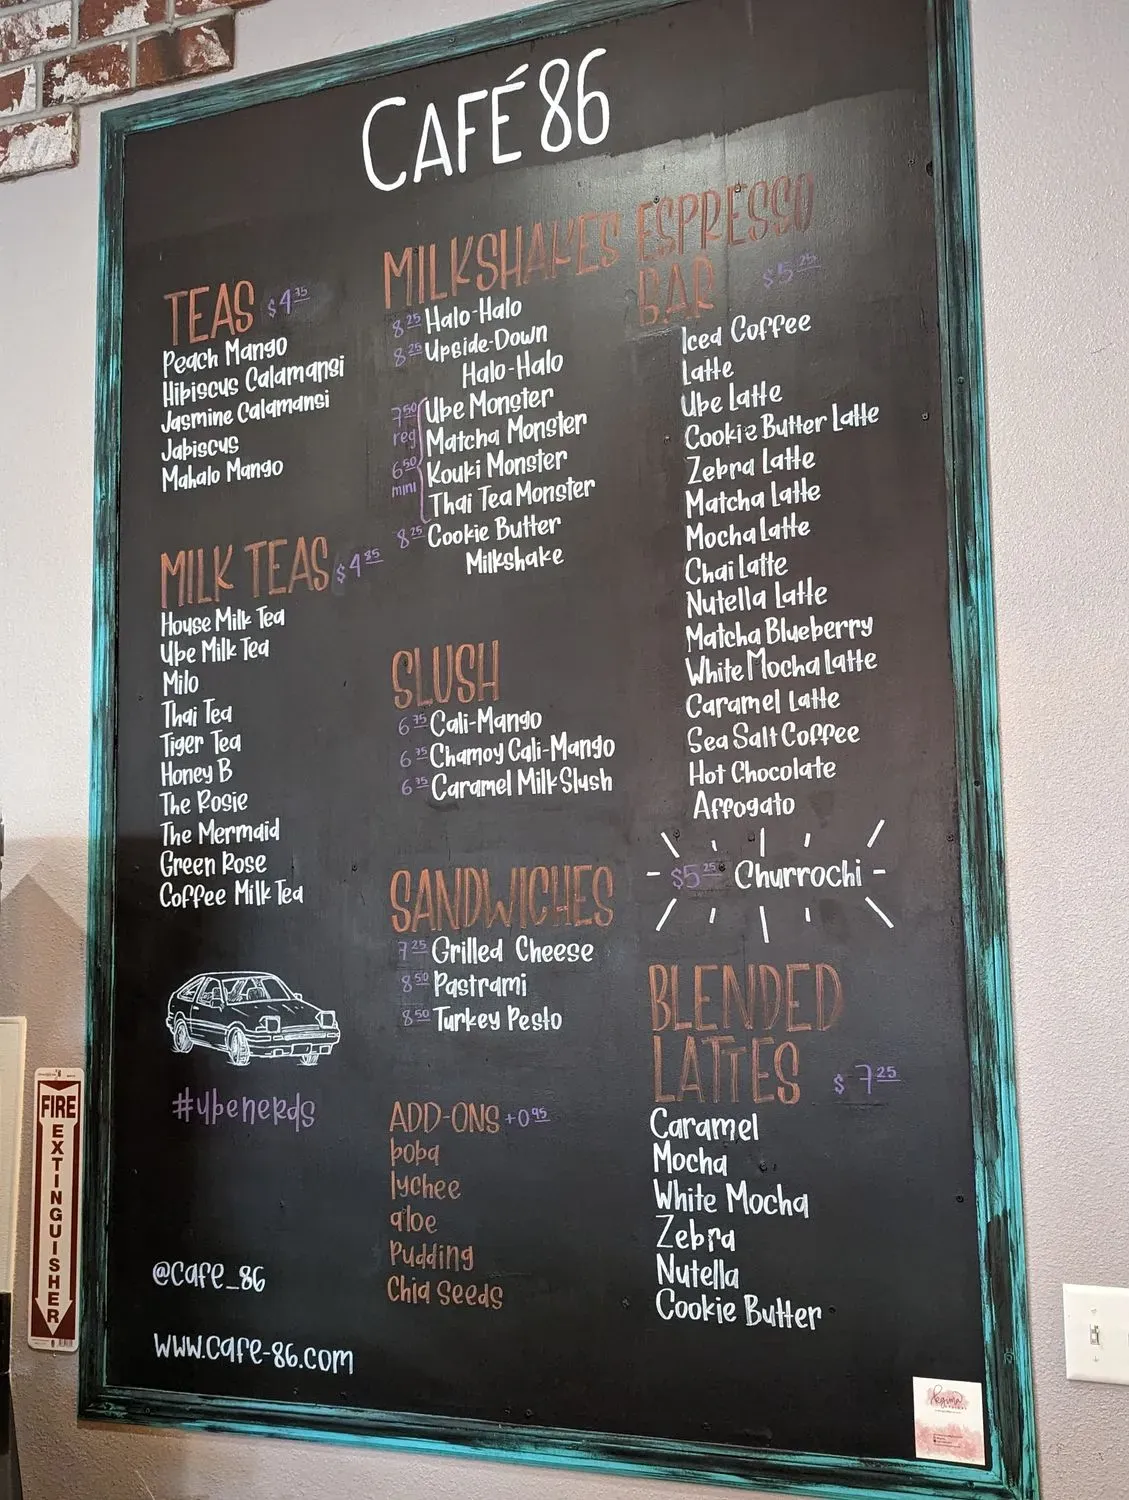 CAFÉ 86
TEAS $4.75
Peach Mango
Hibiscus Calamansi
Jasmine Calamansi
Jabiscus
Mahalo Mango
MILK TEAS $4.85
House Milk Tea
Ube Milk Tea
Milo
Thai Tea
Tiger Tea
Honey B
The Rosie
The Mermaid
Green Rose
Coffee Milk Tea
#ubenerds
@cafe_86
www.cafe-86.com
MILKSHAKES
8.25 Halo-Halo
8.25 Upside-Down
Halo-Halo
7.50 reg
6.50 mini
Ube Monster
Matcha Monster
Kouki Monster
Thai Tea Monster
8.25 Cookie Butter
Milkshake
SLUSH
6.75 Cali-Mango
6.75 Chamoy Cali-Mango
6.75 Caramel Milk Slush
SANDWICHES
7.25 Grilled Cheese
8.50 Pastrami
8.50 Turkey Pesto
ADD-ONS +0.95
boba
lychee
aloe
Pudding
Chia Seeds
ESPRESSO
BAR $5.25
Iced Coffee
Latte
Ube Latte
Cookie Butter Latte
Zebra Latte
Matcha Latte
Mocha Latte
Chai Latte
Nutella Latte
Matcha Blueberry
White Mocha Latte
Caramel Latte
Sea Salt Coffee
Hot Chocolate
Affogato
$5.25 Churrochi
BLENDED
LATTES $7.25
Caramel
Mocha
White Mocha
Zebra
Nutella
Cookie Butter
FIRE
EXTINGUISHER